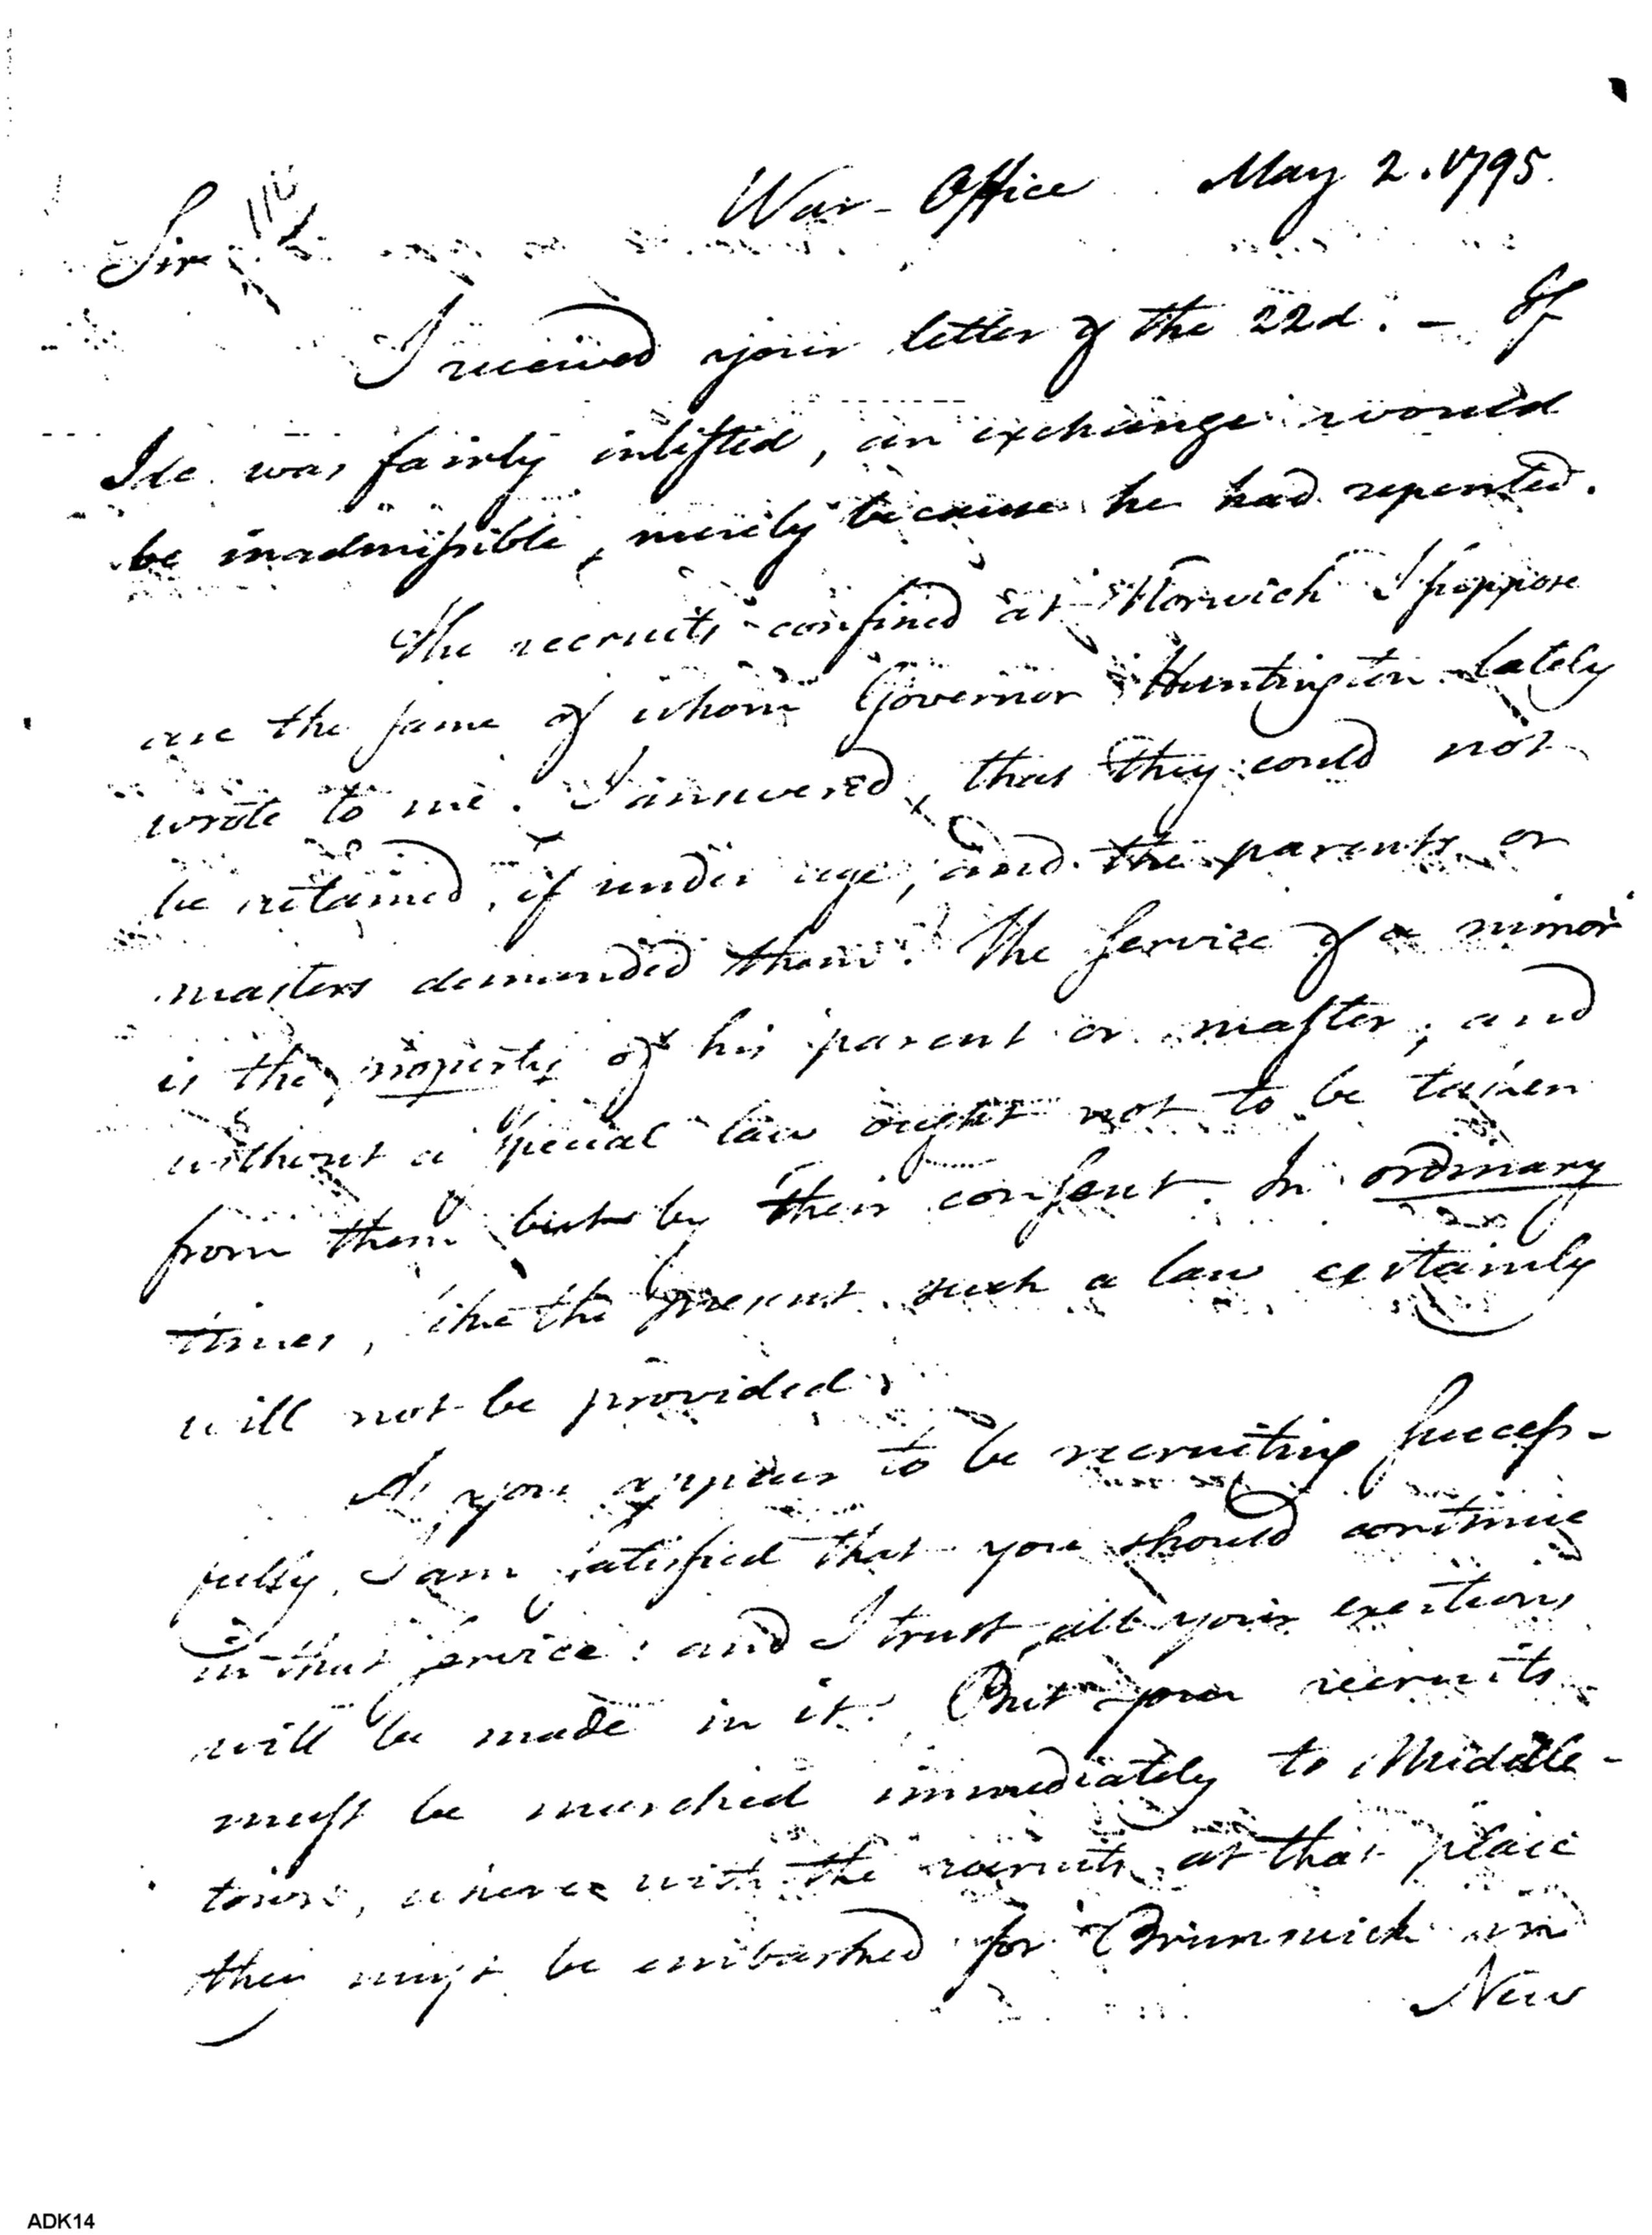 War-Office May 2. 1795.
Sir
I received your letter of the 22d. - If
Ide was fairly inlisted, an exchange would
be inadmissible, merely because he had repented.
The recruits confined at Norwich I suppose
are the same of whom Governor Huntington lately
wrote to me. I answered, that they could not
be retained, if under age, and the parents or
masters demanded them. The service of a minor
is the property of his parent or master; and
without a special law ought not to be taken
from them but by their consent. In ordinary
times, like the present such a law certainly
will not be provided.
As you appear to be recruiting success-
fully, I am satisfied that you should continue
in that service: and I trust all your exertions
will be made in it. But your recruits
must be marched immediately to Middle-
town, whence with the recruits at that place
they must be embarked for Brunswick in
New
ADK14